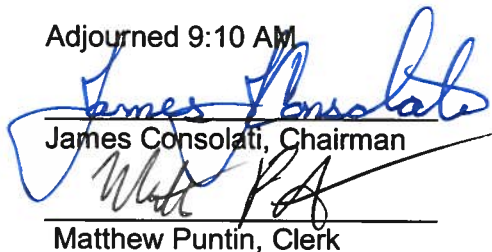 Adjourned 9:10 AM
James Consolati
James Consolati, Chairman
Matt
Matthew Puntin, Clerk